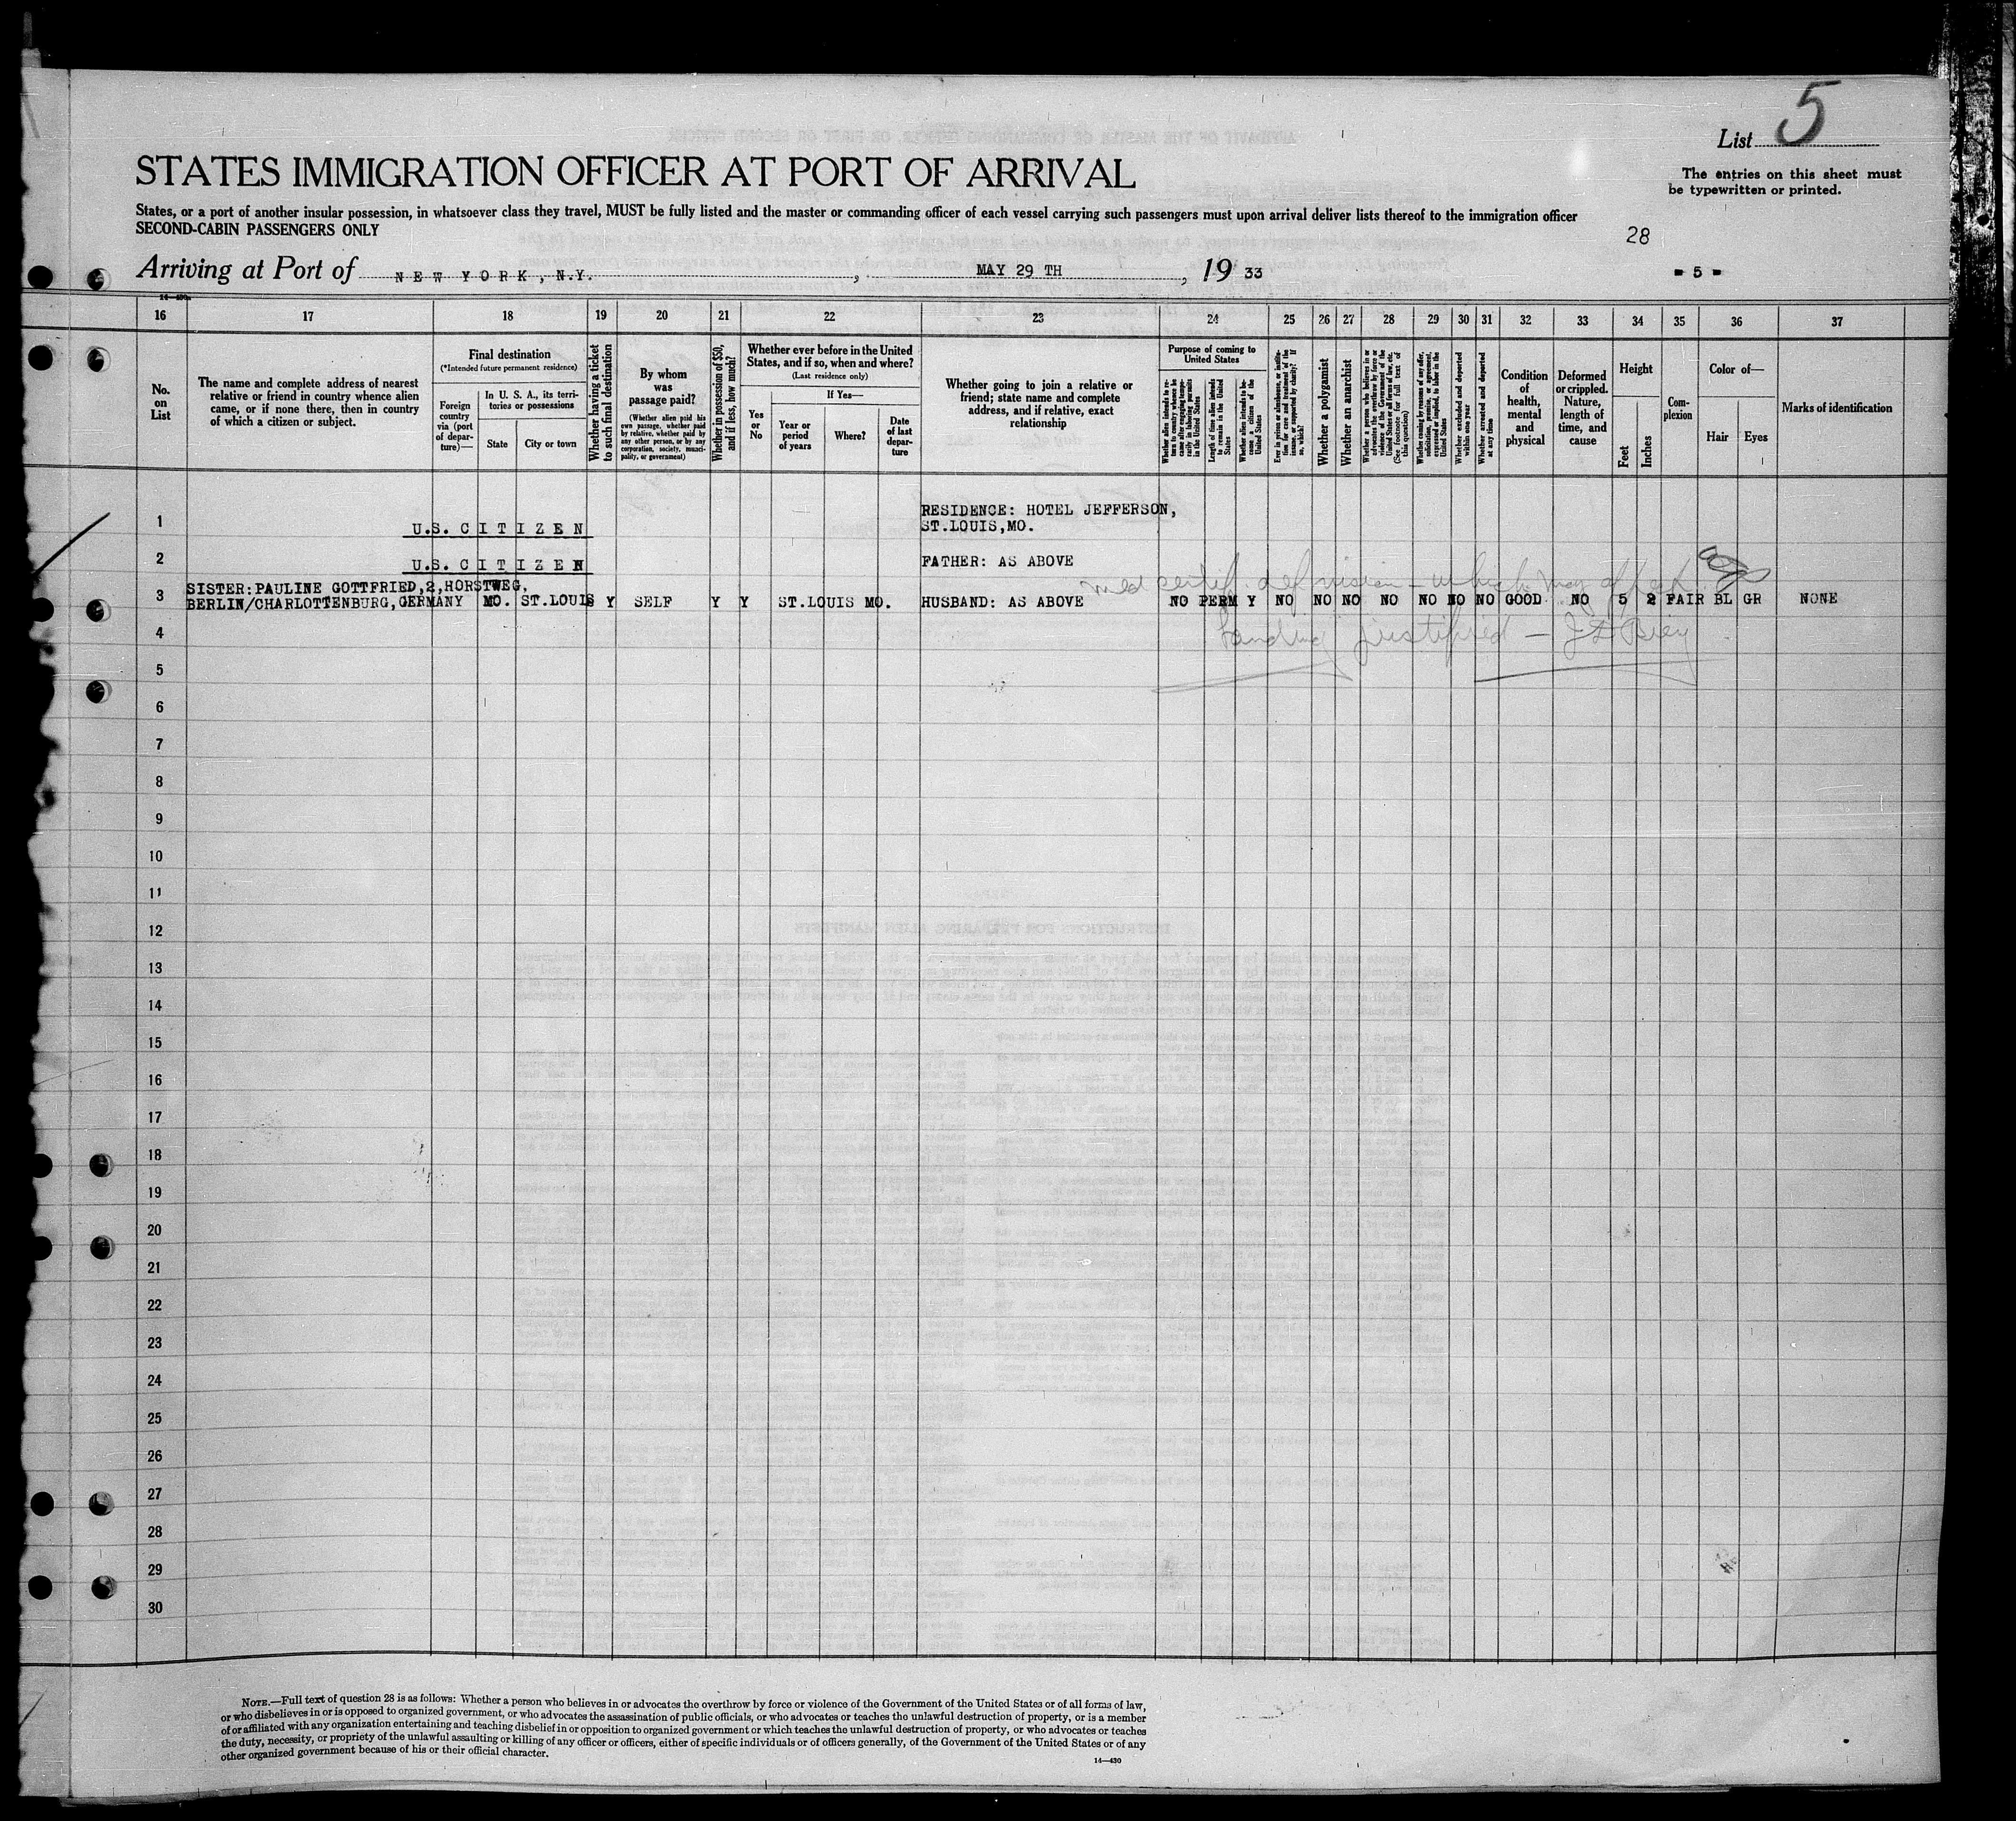 List 5
STATES IMMIGRATION OFFICER AT PORT OF ARRIVAL
The entries on this sheet must
be typewritten or printed.
States, or a port of another insular possession, in whatsoever class they travel, MUST be fully listed and the master or commanding officer of each vessel carrying such passengers must upon arrival deliver lists thereof to the immigration officer
SECOND-CABIN PASSENGERS ONLY
28
Arriving at Port of NEW YORK, N.Y. , MAY 29 TH , 19 33
- 5 -
16 17 18 19 20 21 22 23 24 25 26 27 28 29 30 31 32 33 34 35 36 37
No.
on
List
The name and complete address of nearest
relative or friend in country whence alien
came, or if none there, then in country
of which a citizen or subject.
Final destination
(*Intended future permanent residence)
Foreign
country
via (port
of depar-
ture)—
In U. S. A., its terri-
tories or possessions
State
City or town
Whether having a ticket
to such final destination
By whom
was
passage paid?
(Whether alien paid his
own passage, whether paid
by relative, whether paid by
any other person, or by any
corporation, society, munici-
pality, or government)
Whether in possession of $50,
and if less, how much?
Whether ever before in the United
States, and if so, when and where?
(Last residence only)
Yes
or
No
If Yes—
Year or
period
of years
Where?
Date
of last
depar-
ture
Whether going to join a relative or
friend; state name and complete
address, and if relative, exact
relationship
Purpose of coming to
United States
Whether alien intends to re-
turn to country whence he
came after engaging tempo-
rarily in laboring pursuits
in the United States
Length of time alien intends
to remain in the United
States
Whether alien intends to be-
come a citizen of the
United States
Ever in prison or almshouse, or institu-
tion for care and treatment of the
insane, or supported by charity? If
so, which?
Whether a polygamist
Whether an anarchist
Whether a person who believes in or
advocates the overthrow by force or
violence of the Government of the
United States or all forms of law, etc.
(See footnote for full text of
this question)
Whether coming by reasons of any offer,
solicitation, promise, or agreement,
expressed or implied, to labor in the
United States
Whether excluded and deported
within one year
Whether arrested and deported
at any time
Condition
of
health,
mental
and
physical
Deformed
or crippled.
Nature,
length of
time, and
cause
Height
Feet
Inches
Com-
plexion
Color of—
Hair
Eyes
Marks of identification
1 U.S. CITIZEN RESIDENCE: HOTEL JEFFERSON,
ST.LOUIS,MO.
2 U.S. CITIZEN FATHER: AS ABOVE
med certif. def vision - which may affect
SISTER:PAULINE GOTTFRIED,2,HORSTWEG,
3 BERLIN/CHARLOTTENBURG,GERMANY MO. ST.LOUIS Y SELF Y Y ST.LOUIS MO. HUSBAND: AS ABOVE NO PERM Y NO NO NO NO NO NO NO GOOD NO 5 2 FAIR BL GR NONE
4 Landing justified —
5
6
7
8
9
10
11
12
13
14
15
16
17
18
19
20
21
22
23
24
25
26
27
28
29
30
NOTE.—Full text of question 28 is as follows: Whether a person who believes in or advocates the overthrow by force or violence of the Government of the United States or of all forms of law,
or who disbelieves in or is opposed to organized government, or who advocates the assassination of public officials, or who advocates or teaches the unlawful destruction of property, or is a member
of or affiliated with any organization entertaining and teaching disbelief in or opposition to organized government or which teaches the unlawful destruction of property, or who advocates or teaches
the duty, necessity, or propriety of the unlawful assaulting or killing of any officer or officers, either of specific individuals or of officers generally, of the Government of the United States or of any
other organized government because of his or their official character.
14—430